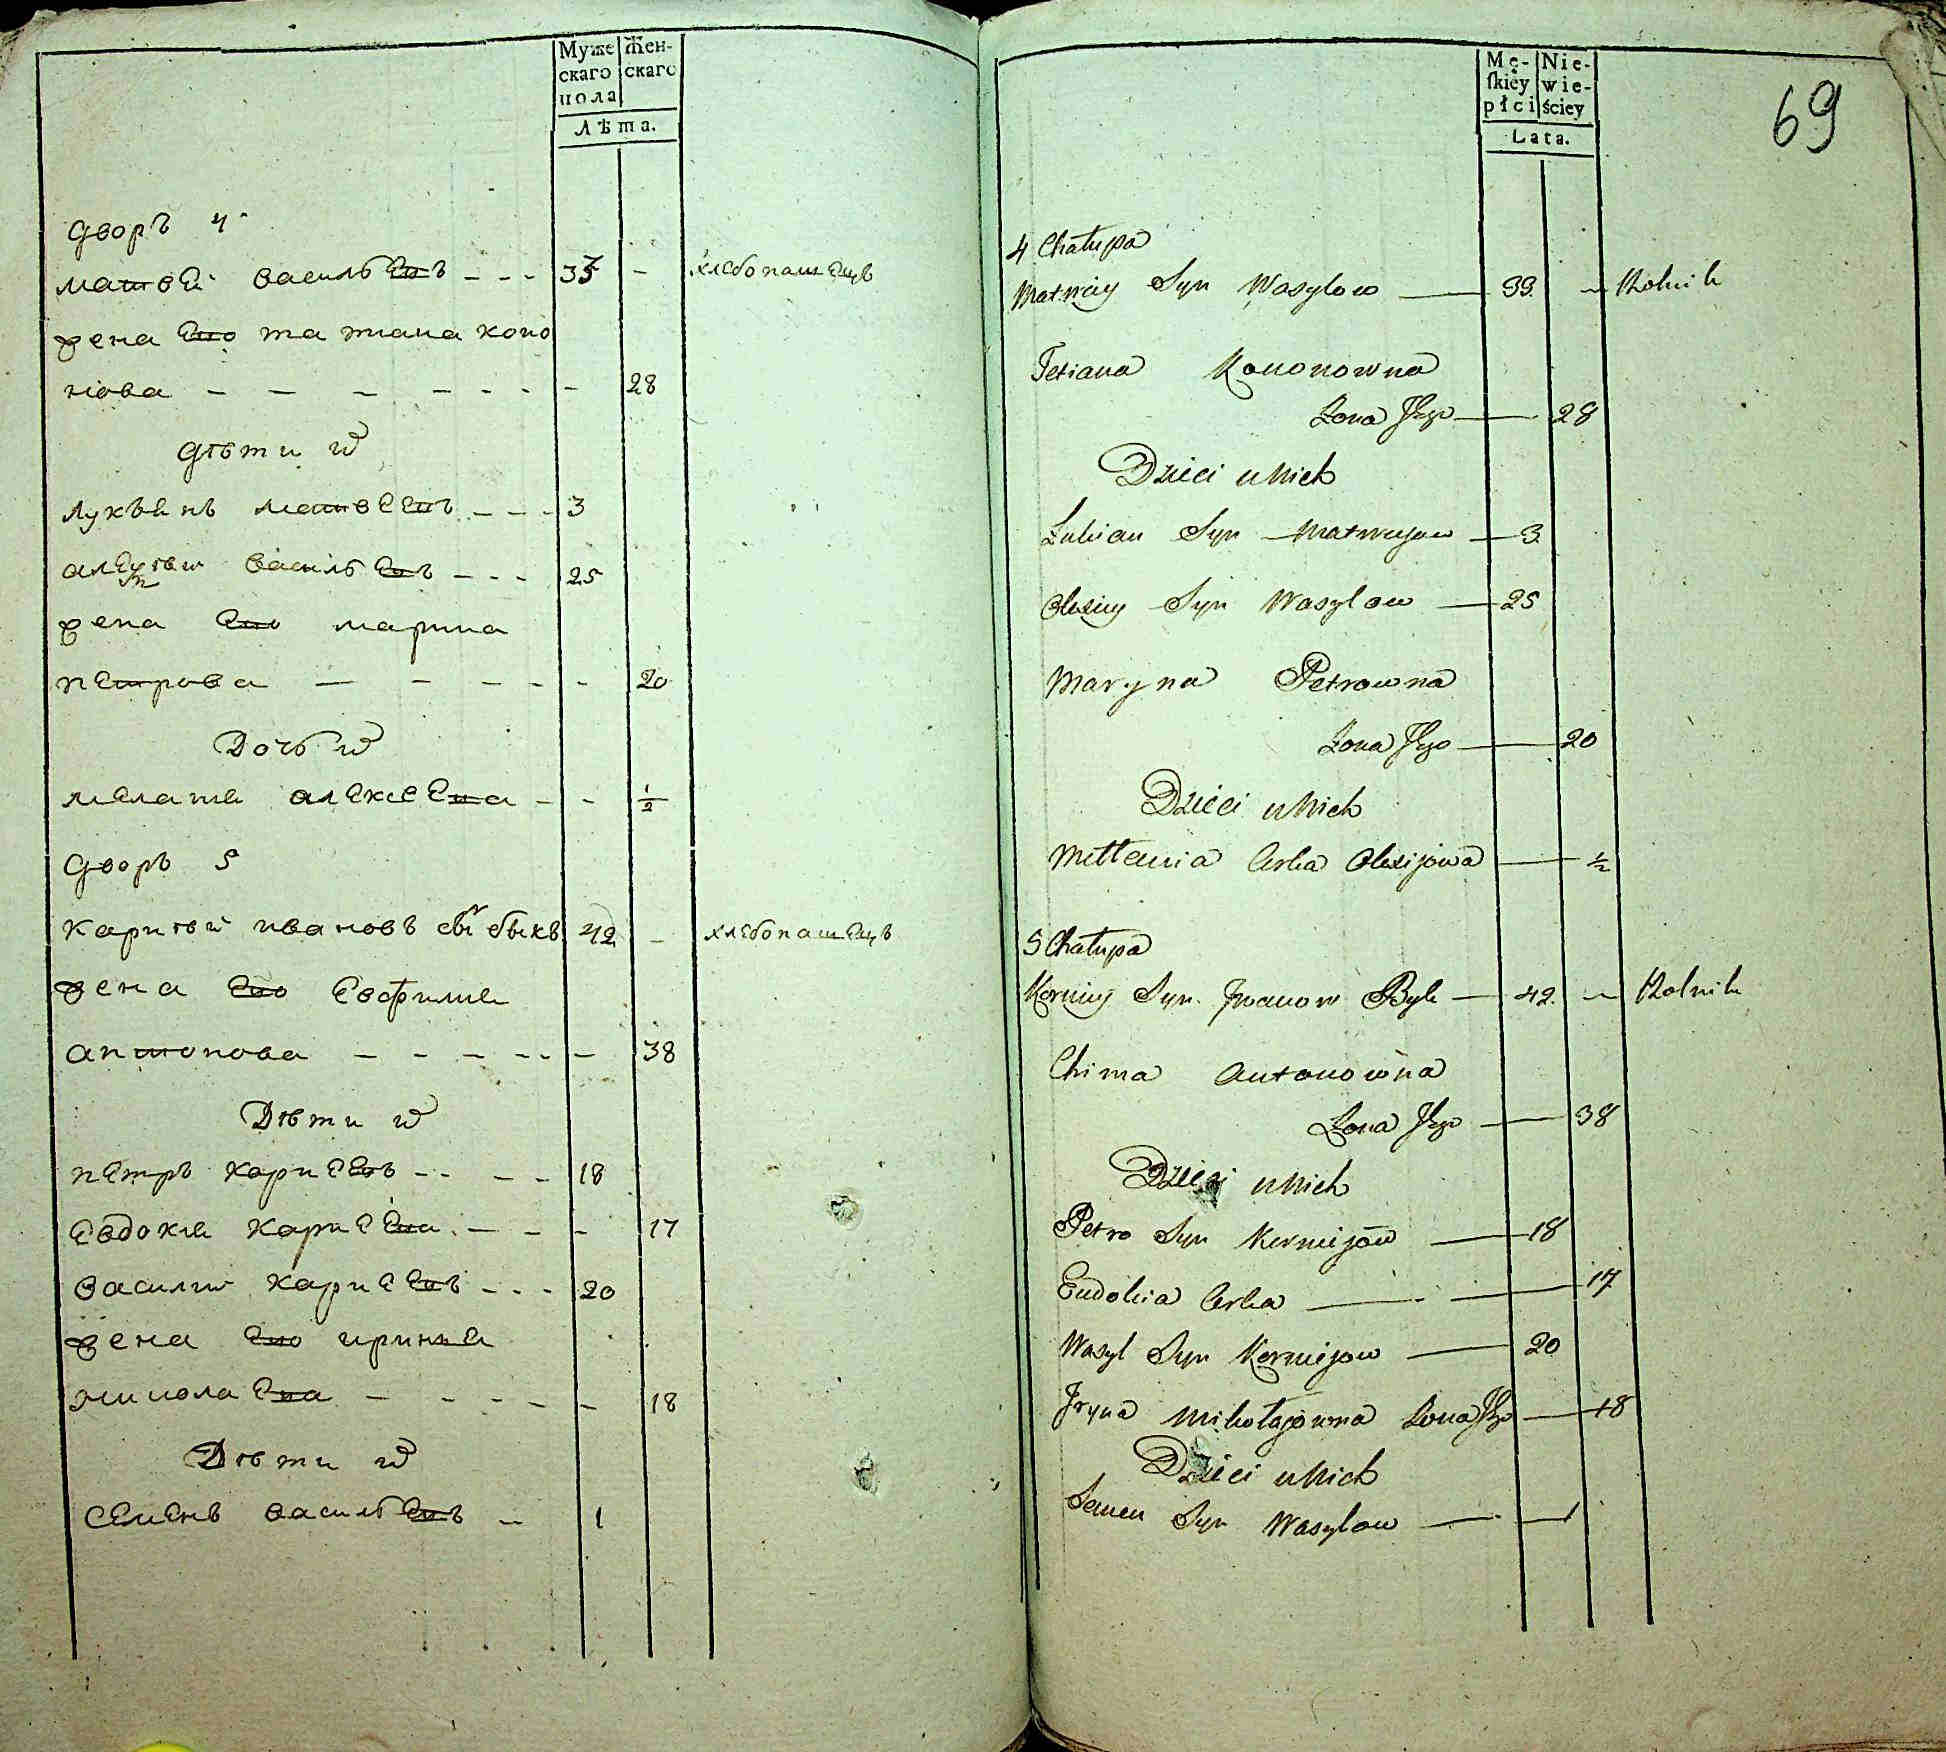 Муже
скаго
пола
Жен-
скаго
Лѣта.
дворъ 4
матвей васильевъ - - - 35 - хлебопашецъ
жена ево татиана коно
нова - - - - - - - 28
дѣти
лукъянъ матвеевъ - - - 3
алексѣй васильевъ - - - 25
жена ево марина
петрова - - - - - - 20
Дочь
мелания алексеева - - 1/2
дворъ 5
карнѣй ивановъ сынъ быкъ 42 - хлебопашецъ
жена ево евфимия
антонова - - - - - - 38
Дѣти
петръ карнеевъ - - - - 18
евдокия карнеева - - - 17
василий карнеевъ - - - 20
жена ево иринья
николаева - - - - - - 18
Дѣти
семенъ васильевъ - 1
Mę-
ſkiéy
płci
Nie-
wie-
ściey
Lata.
69
4 Chałupa
Matwiy Syn Wasylow — 33. — Rolnik
Tetiana Kononowna
Żona Jego — 28
Dzieci u Nich
Lukian Syn Matwiyow — 3
Olexiy Syn Wasylow — 25
Maryna Petrowna
Żona Jego — 20
Dzieci u Nich
Mełłania Corka Olexijowa — 1/2
5 Chałupa
Korniy Syn Iwanow Byk — 42. — Rolnik
Chima Antonowna
Żona Jego — 38
Dzieci u Nich
Petro Syn Kornijow — 18
Eudokia Corka — 17
Wasyl Syn Kornijow — 20
Iryna Mikołajowna Żona Jego — 18
Dzieci u Nich
Semen Syn Wasylow — 1